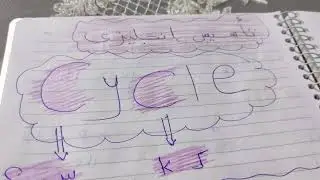 تأسيس انجليزي
Cycle
K